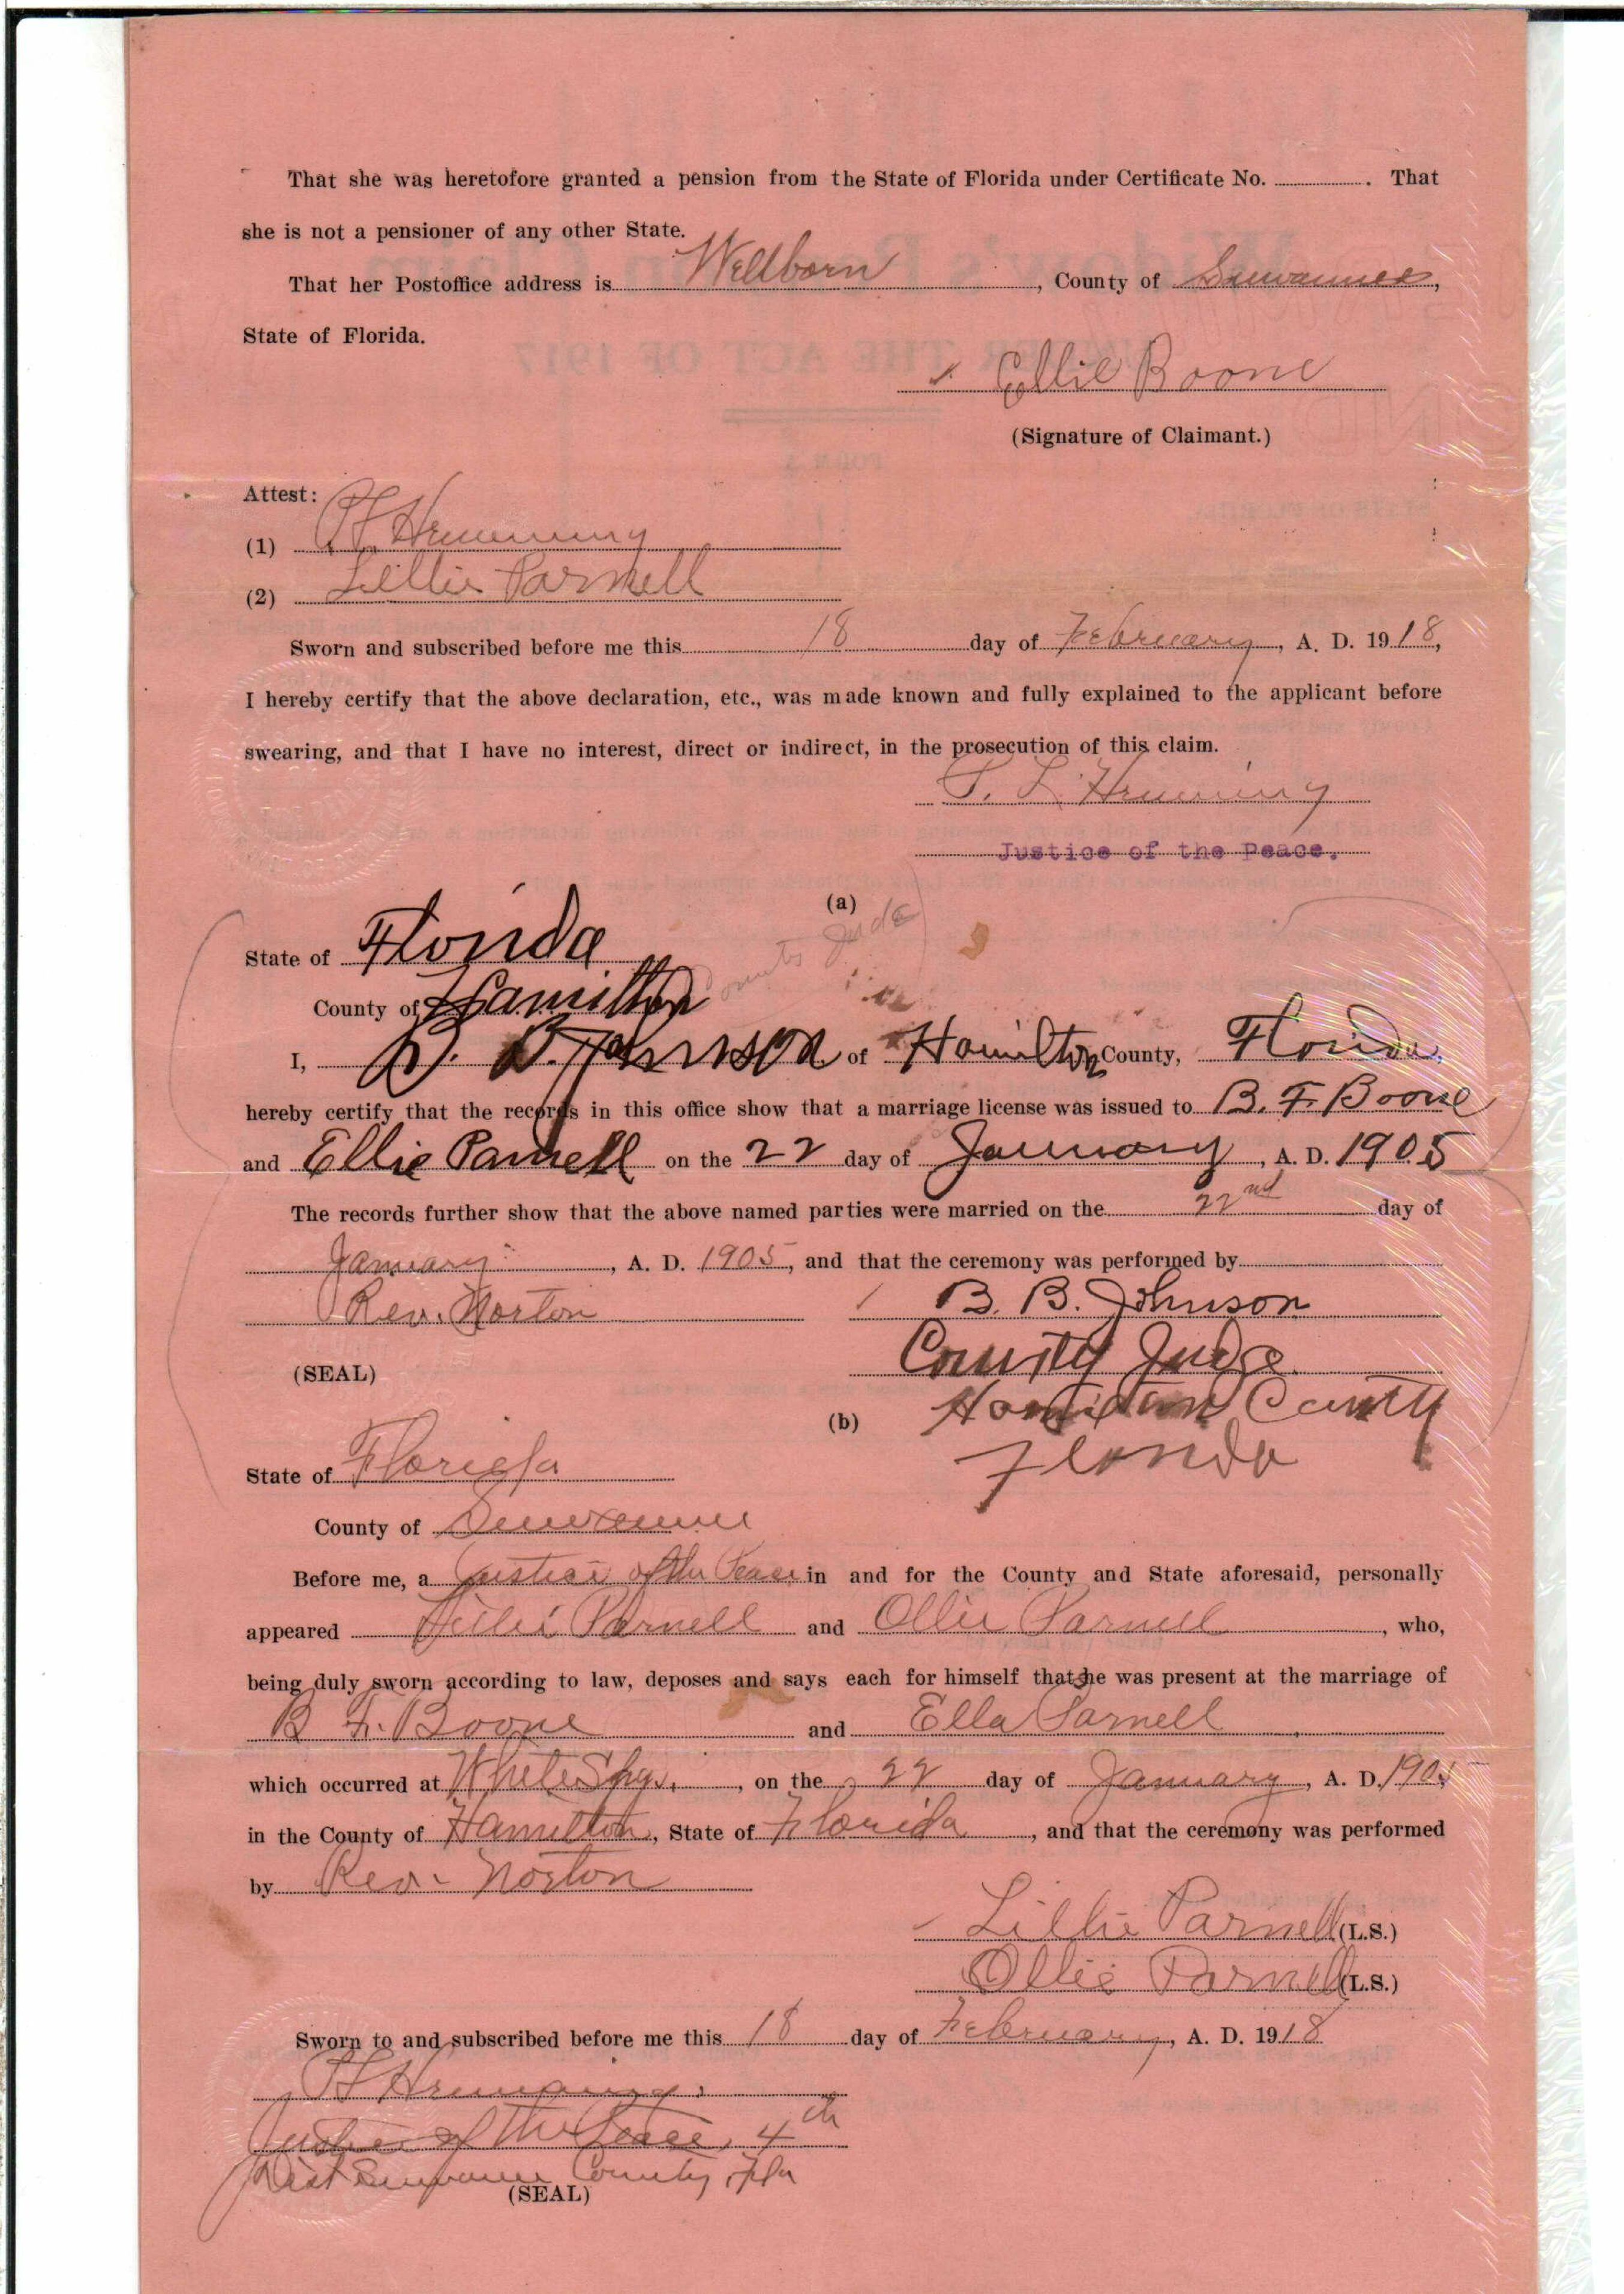 That she was heretofore granted a pension from the State of Florida under Certificate No. . That
she is not a pensioner of any other State.
That her Postoffice address is Wellborn, County of Suwannee,
State of Florida.
Ellie Boone
(Signature of Claimant.)
Attest:
(1) Hemming
(2) Lillie Parnell
Sworn and subscribed before me this 18 day of February, A. D. 1918,
I hereby certify that the above declaration, etc., was made known and fully explained to the applicant before
swearing, and that I have no interest, direct or indirect, in the prosecution of this claim.
Hemming
Justice of the Peace.
(a)
State of Florida
County of Hamilton
I, B. B. Johnson of Hamilton County, Florida,
hereby certify that the records in this office show that a marriage license was issued to B. F. Boone
and Ellie Parnell on the 22 day of January, A. D. 1905
The records further show that the above named parties were married on the 22nd day of
January, A. D. 1905, and that the ceremony was performed by
Rev. Norton B. B. Johnson
(SEAL) County Judge
(b) Hamilton County
Florida
State of Florida
County of Suwannee
Before me, a Justice of the Peace in and for the County and State aforesaid, personally
appeared Lillie Parnell and Ollie Parnell, who,
being duly sworn according to law, deposes and says each for himself that she was present at the marriage of
B. F. Boone and Ella Parnell
which occurred at White Spgs., on the 22 day of January, A. D. 1905
in the County of Hamilton, State of Florida, and that the ceremony was performed
by Rev. Norton
Lillie Parnell (L.S.)
Ollie Parnell (L.S.)
Sworn to and subscribed before me this 18 day of February, A. D. 1918
Hemming
Justice of the Peace, 4th
Dist Suwannee County, Fla
(SEAL)